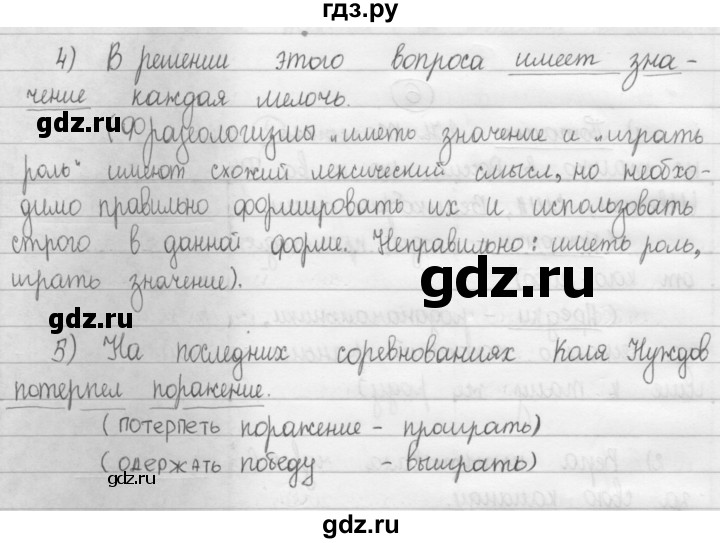 гдз.ру
4) В решении этого вопроса имеет зна-
чение каждая мелочь.
gdz.ru
(Фразеологизмы „иметь значение и „играть
роль" имеют схожий лексический смысл, но необхо-
димо правильно формировать их и использовать
строго в данной форме. Неправильно: иметь роль,
играть значение).
gdz.ru
5) На последних соревнованиях Коля Нуждов
потерпел поражение.
(потерпеть поражение - проиграть)
(одержать победу - выиграть)
gdz.ru
gdz.ru